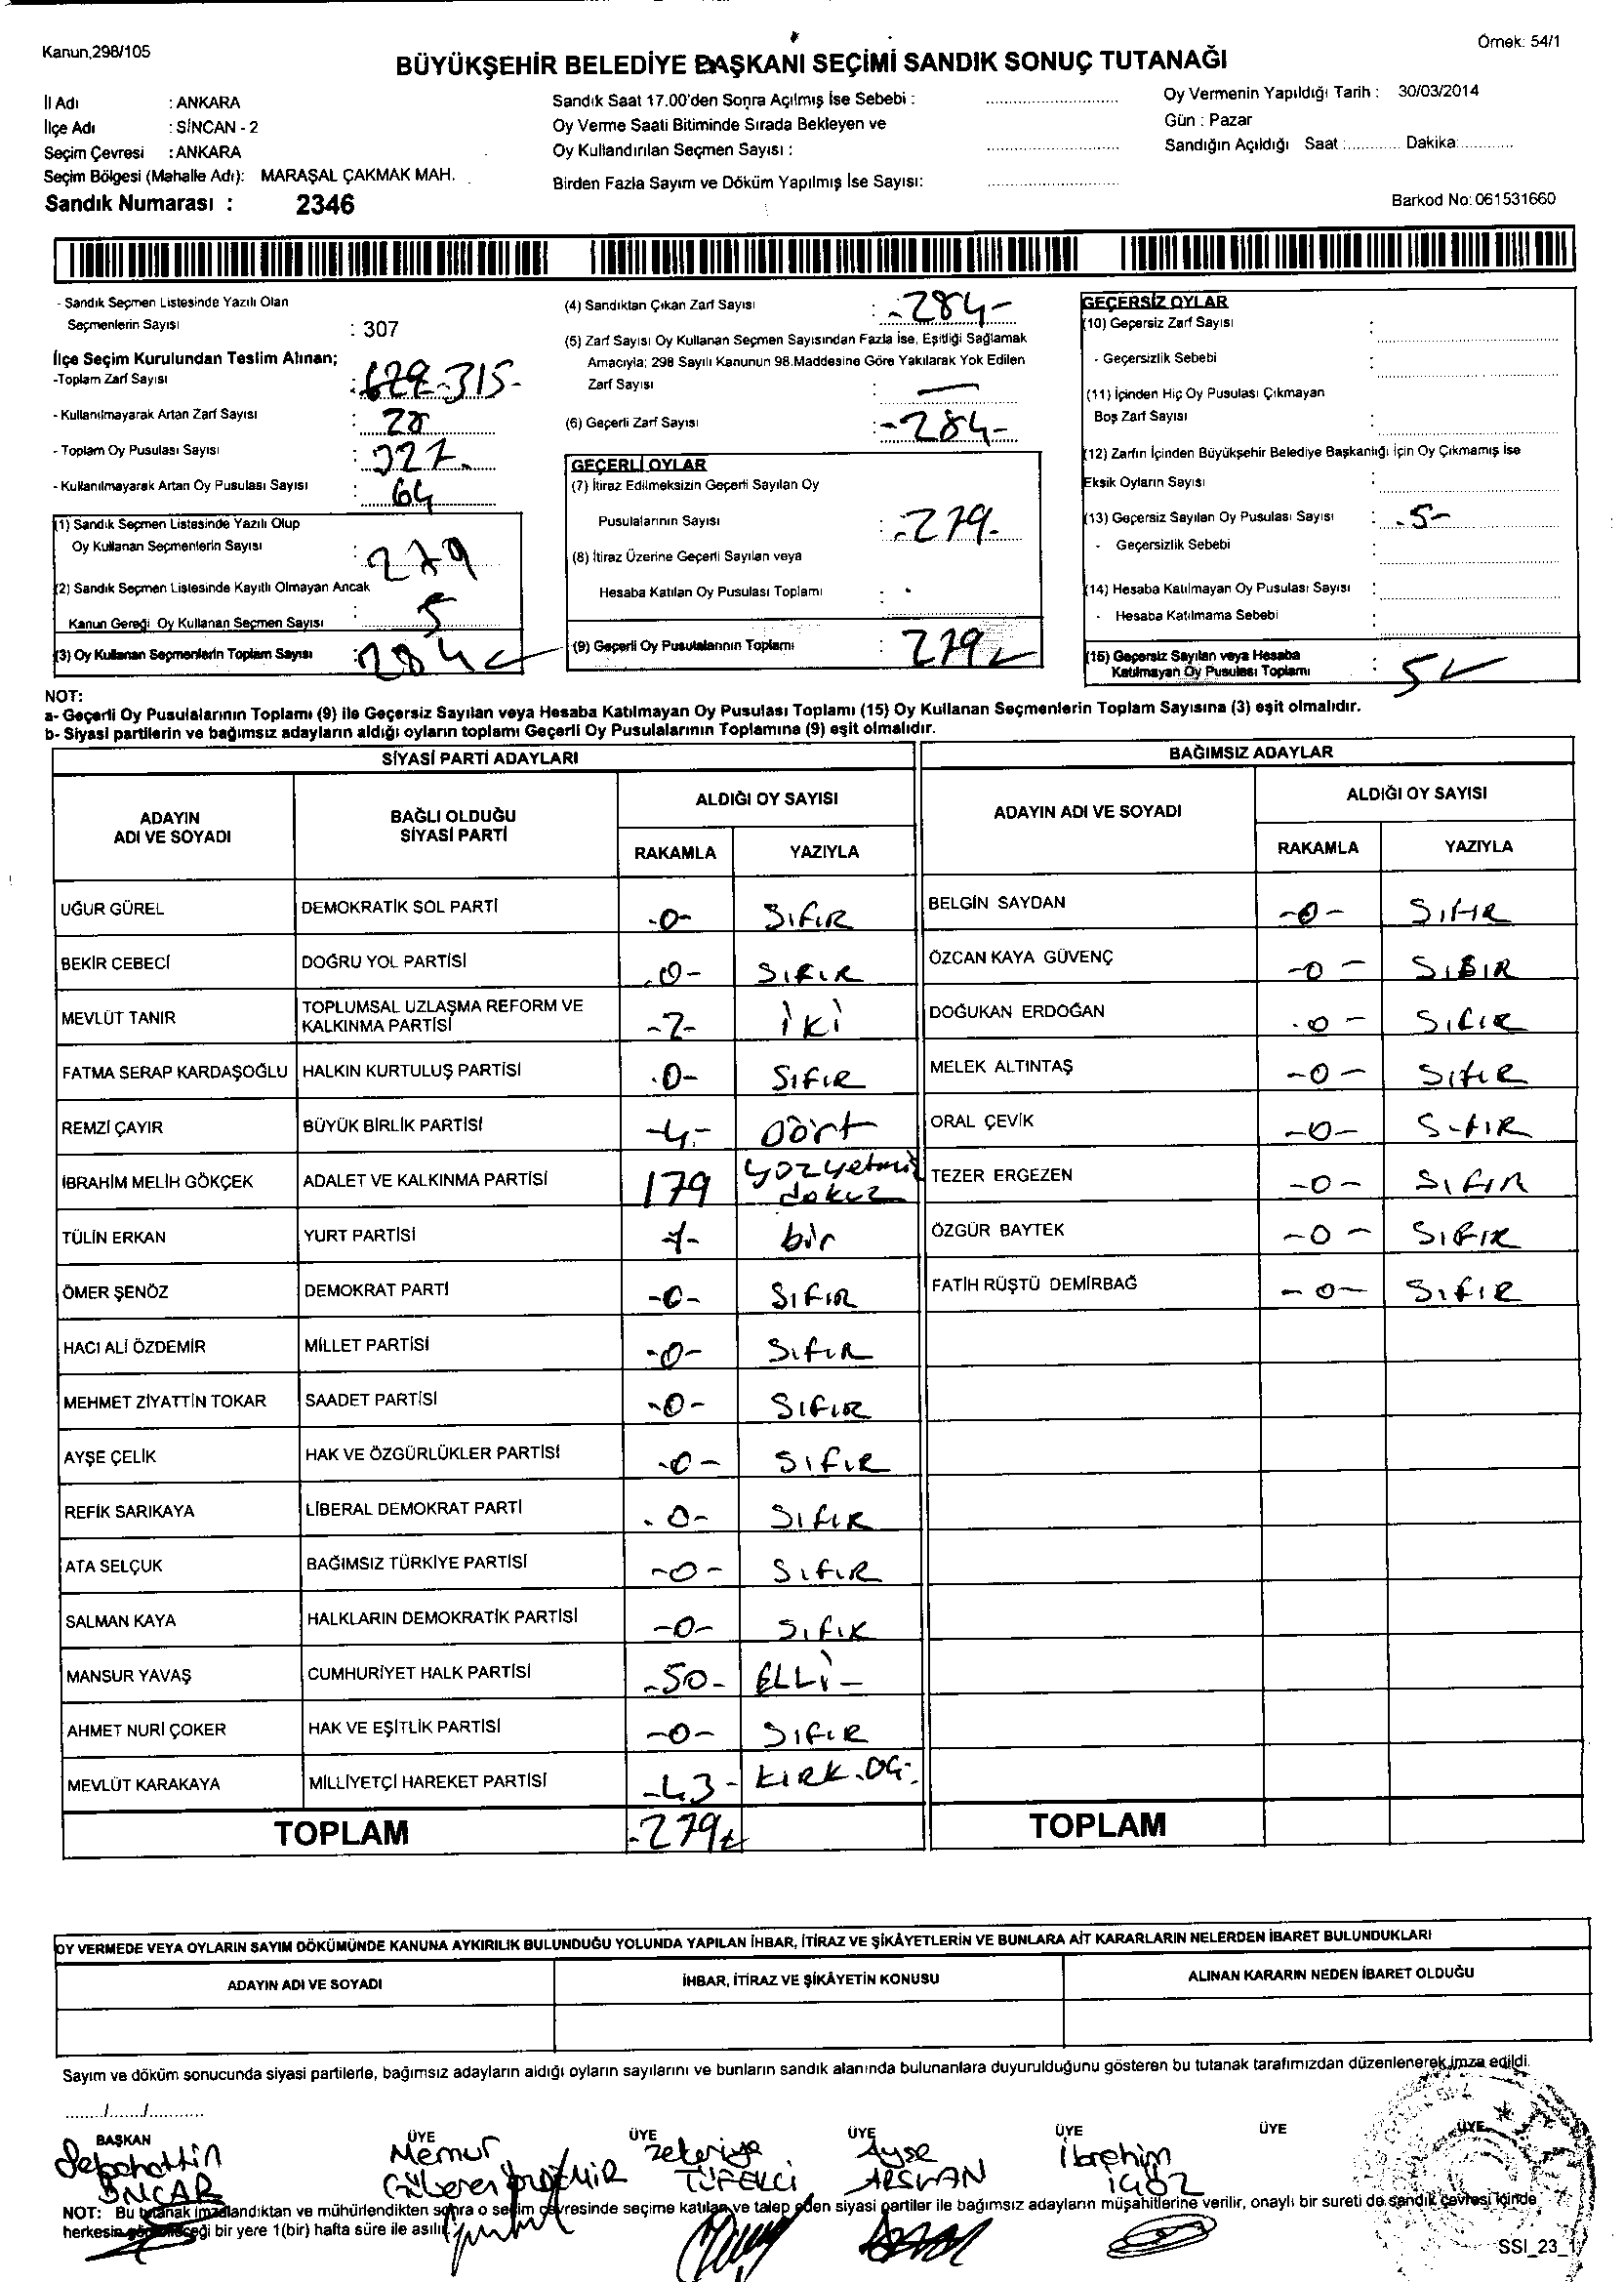 Kanun,298/105
Örnek: 54/1
BÜYÜKŞEHİR BELEDİYE BAŞKANI SEÇİMİ SANDIK SONUÇ TUTANAĞI
İl Adı : ANKARA
İlçe Adı : SİNCAN - 2
Seçim Çevresi : ANKARA
Seçim Bölgesi (Mahalle Adı): MARAŞAL ÇAKMAK MAH.
Sandık Numarası : 2346
Sandık Saat 17.00'den Sonra Açılmış İse Sebebi :
Oy Verme Saati Bitiminde Sırada Bekleyen ve
Oy Kullandırılan Seçmen Sayısı :
Birden Fazla Sayım ve Döküm Yapılmış İse Sayısı:
Oy Vermenin Yapıldığı Tarih : 30/03/2014
Gün : Pazar
Sandığın Açıldığı Saat :............ Dakika:............
Barkod No: 061531660
- Sandık Seçmen Listesinde Yazılı Olan
Seçmenlerin Sayısı : 307
İlçe Seçim Kurulundan Teslim Alınan;
-Toplam Zarf Sayısı : 315-
- Kullanılmayarak Artan Zarf Sayısı : 28
- Toplam Oy Pusulası Sayısı : 327.
- Kullanılmayarak Artan Oy Pusulası Sayısı : 64
(1) Sandık Seçmen Listesinde Yazılı Olup
Oy Kullanan Seçmenlerin Sayısı : 279
(2) Sandık Seçmen Listesinde Kayıtlı Olmayan Ancak
Kanun Gereği Oy Kullanan Seçmen Sayısı : 5
(3) Oy Kullanan Seçmenlerin Toplam Sayısı : 284
(4) Sandıktan Çıkan Zarf Sayısı : -284-
(5) Zarf Sayısı Oy Kullanan Seçmen Sayısından Fazla İse, Eşitliği Sağlamak
Amacıyla; 298 Sayılı Kanunun 98.Maddesine Göre Yakılarak Yok Edilen
Zarf Sayısı : —
(6) Geçerli Zarf Sayısı : -284-
GEÇERLİ OYLAR
(7) İtiraz Edilmeksizin Geçerli Sayılan Oy
Pusulalarının Sayısı : -279-
(8) İtiraz Üzerine Geçerli Sayılan veya
Hesaba Katılan Oy Pusulası Toplamı :
(9) Geçerli Oy Pusulalarının Toplamı : 279
GEÇERSİZ OYLAR
(10) Geçersiz Zarf Sayısı :
- Geçersizlik Sebebi :
(11) İçinden Hiç Oy Pusulası Çıkmayan
Boş Zarf Sayısı :
(12) Zarfın İçinden Büyükşehir Belediye Başkanlığı İçin Oy Çıkmamış İse
Eksik Oyların Sayısı :
(13) Geçersiz Sayılan Oy Pusulası Sayısı : -5-
- Geçersizlik Sebebi :
(14) Hesaba Katılmayan Oy Pusulası Sayısı :
- Hesaba Katılmama Sebebi :
(15) Geçersiz Sayılan veya Hesaba
Katılmayan Oy Pusulası Toplamı : 5
NOT:
a- Geçerli Oy Pusulalarının Toplamı (9) ile Geçersiz Sayılan veya Hesaba Katılmayan Oy Pusulası Toplamı (15) Oy Kullanan Seçmenlerin Toplam Sayısına (3) eşit olmalıdır.
b- Siyasi partilerin ve bağımsız adayların aldığı oyların toplamı Geçerli Oy Pusulalarının Toplamına (9) eşit olmalıdır.
SİYASİ PARTİ ADAYLARI
ADAYIN ADI VE SOYADI BAĞLI OLDUĞU SİYASİ PARTİ ALDIĞI OY SAYISI
RAKAMLA YAZIYLA
UĞUR GÜREL DEMOKRATİK SOL PARTİ -0- SIFIR
BEKİR CEBECİ DOĞRU YOL PARTİSİ -0- SIFIR
MEVLÜT TANIR TOPLUMSAL UZLAŞMA REFORM VE KALKINMA PARTİSİ -2- İKİ
FATMA SERAP KARDAŞOĞLU HALKIN KURTULUŞ PARTİSİ -0- SIFIR
REMZİ ÇAYIR BÜYÜK BİRLİK PARTİSİ -4- Dört
İBRAHİM MELİH GÖKÇEK ADALET VE KALKINMA PARTİSİ 179 yüzyetmiş dokuz
TÜLİN ERKAN YURT PARTİSİ -1- bir
ÖMER ŞENÖZ DEMOKRAT PARTİ -0- SIFIR
HACI ALİ ÖZDEMİR MİLLET PARTİSİ -0- SIFIR
MEHMET ZİYATTİN TOKAR SAADET PARTİSİ -0- SIFIR
AYŞE ÇELİK HAK VE ÖZGÜRLÜKLER PARTİSİ -0- SIFIR
REFİK SARIKAYA LİBERAL DEMOKRAT PARTİ -0- SIFIR
ATA SELÇUK BAĞIMSIZ TÜRKİYE PARTİSİ -0- SIFIR
SALMAN KAYA HALKLARIN DEMOKRATİK PARTİSİ -0- SIFIR
MANSUR YAVAŞ CUMHURİYET HALK PARTİSİ -50- ELLİ-
AHMET NURİ ÇOKER HAK VE EŞİTLİK PARTİSİ -0- SIFIR
MEVLÜT KARAKAYA MİLLİYETÇİ HAREKET PARTİSİ -43- KIRK
TOPLAM -279
BAĞIMSIZ ADAYLAR
ADAYIN ADI VE SOYADI ALDIĞI OY SAYISI
RAKAMLA YAZIYLA
BELGİN SAYDAN -0- SIFIR
ÖZCAN KAYA GÜVENÇ -0- SIFIR
DOĞUKAN ERDOĞAN -0- SIFIR
MELEK ALTINTAŞ -0- SIFIR
ORAL ÇEVİK -0- SIFIR
TEZER ERGEZEN -0- SIFIR
ÖZGÜR BAYTEK -0- SIFIR
FATİH RÜŞTÜ DEMİRBAĞ -0- SIFIR
TOPLAM
OY VERMEDE VEYA OYLARIN SAYIM DÖKÜMÜNDE KANUNA AYKIRILIK BULUNDUĞU YOLUNDA YAPILAN İHBAR, İTİRAZ VE ŞİKÂYETLERİN VE BUNLARA AİT KARARLARIN NELERDEN İBARET BULUNDUKLARI
ADAYIN ADI VE SOYADI İHBAR, İTİRAZ VE ŞİKÂYETİN KONUSU ALINAN KARARIN NEDEN İBARET OLDUĞU
Sayım ve döküm sonucunda siyasi partilerle, bağımsız adayların aldığı oyların sayılarını ve bunların sandık alanında bulunanlara duyurulduğunu gösteren bu tutanak tarafımızdan düzenlenerek imza edildi.
....../....../..........
BAŞKAN ÜYE ÜYE ÜYE ÜYE ÜYE ÜYE
Memur Zekeriya Ayşe İbrahim
TÜFEKCİ ARSLAN
NOT: Bu tutanak imzalandıktan ve mühürlendikten sonra o seçim çevresinde seçime katılan ve talep eden siyasi partiler ile bağımsız adayların müşahitlerine verilir, onaylı bir sureti de sandık çevresi içinde
herkesin görebileceği bir yere 1(bir) hafta süre ile asılır.
SSI_23_1